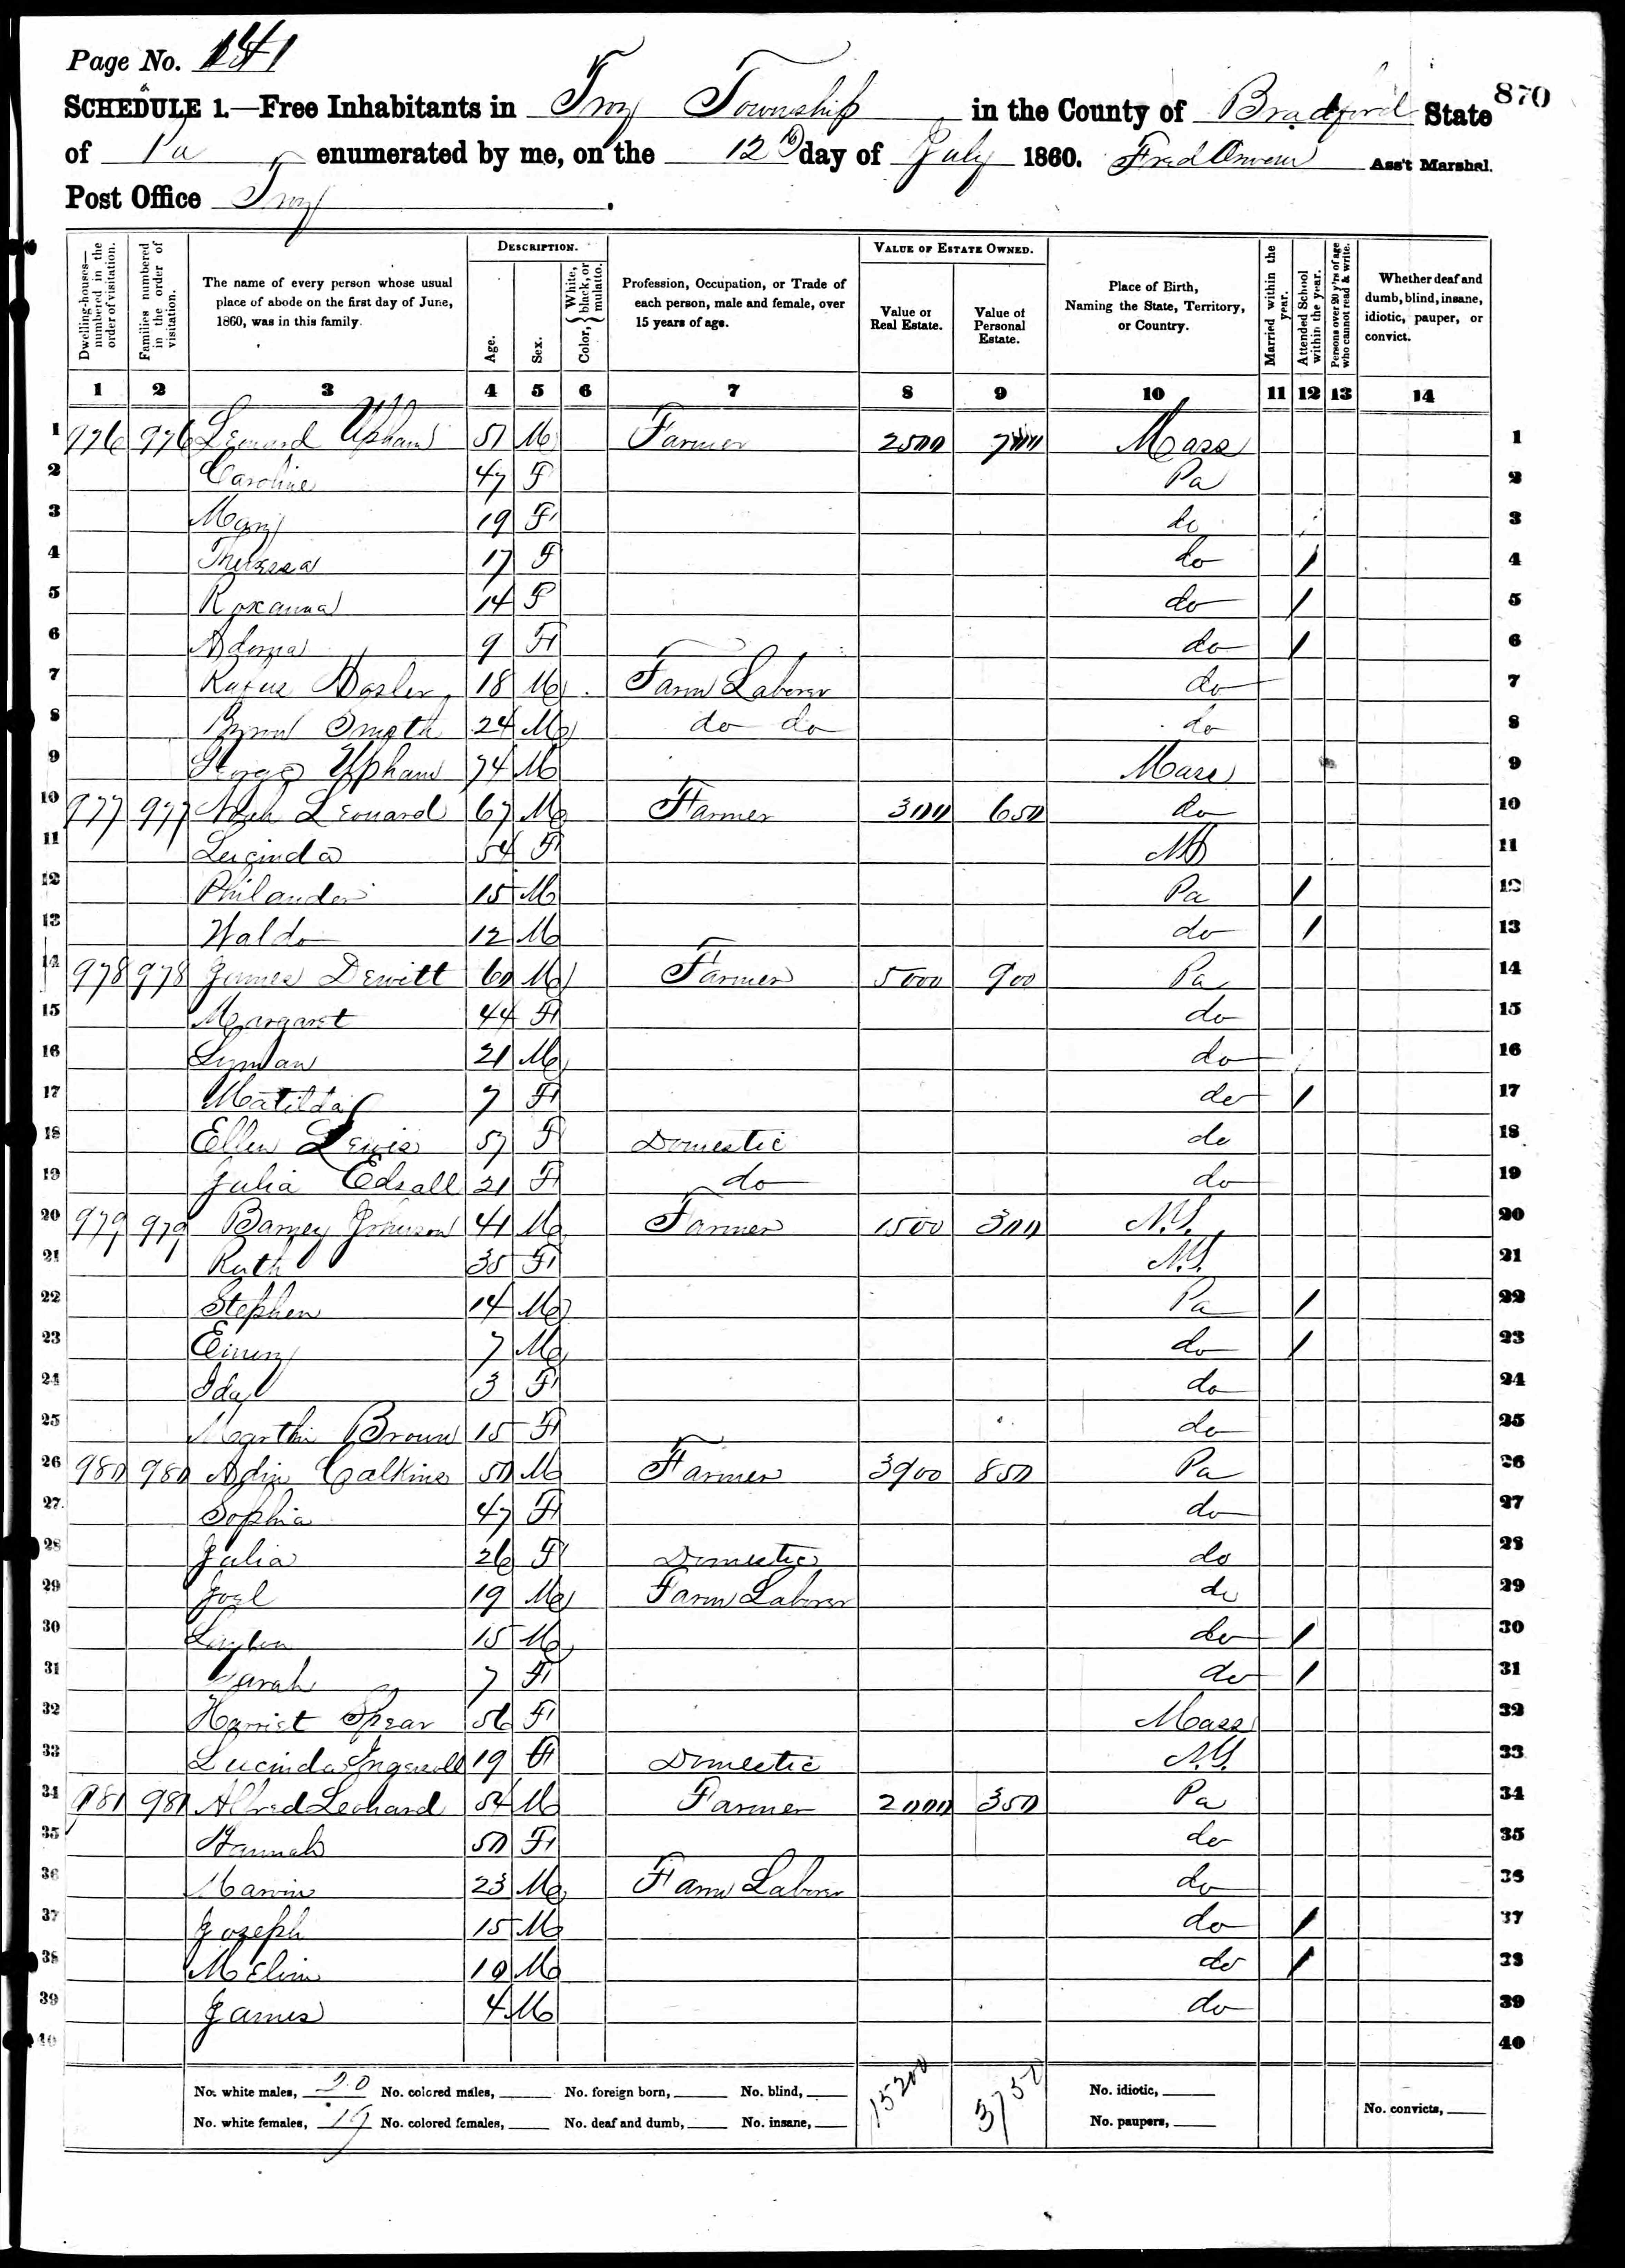 Page No. 141
870
SCHEDULE 1.—Free Inhabitants in Troy Township in the County of Bradford State
of Pa enumerated by me, on the 12th day of July 1860. Fred Orwen Ass't Marshal.
Post Office Troy.
Dwelling-houses—numbered in the order of visitation. Families numbered in the order of visitation. The name of every person whose usual place of abode on the first day of June, 1860, was in this family. DESCRIPTION. Age. Sex. Color, { White, black, or mulatto. Profession, Occupation, or Trade of each person, male and female, over 15 years of age. VALUE OF ESTATE OWNED. Value of Real Estate. Value of Personal Estate. Place of Birth, Naming the State, Territory, or Country. Married within the year. Attended School within the year. Persons over 20 y'rs of age who cannot read & write. Whether deaf and dumb, blind, insane, idiotic, pauper, or convict.
1 2 3 4 5 6 7 8 9 10 11 12 13 14
1 976 976 Leonard Upham 51 M Farmer 2500 700 Mass 1
2 Caroline 47 F Pa 2
3 Mary 19 F do 3
4 Theressa 17 F do / 4
5 Roxanna 14 F do / 5
6 9 F do / 6
7 Rufus 18 M Farm Laborer do 7
8 Smith 24 M do do do 8
9 George Upham 74 M Mass 9
10 977 977 Leonard 67 M Farmer 3000 650 do 10
11 Lucinda 54 F 11
12 Philander 15 M Pa / 12
13 Waldo 12 M do / 13
14 978 978 James Dewitt 60 M Farmer 5000 900 Pa 14
15 Margaret 44 F do 15
16 Lyman 21 M do 16
17 Matilda 7 F do / 17
18 Ellen Lewis 57 F Domestic do 18
19 Julia Edsall 21 F do do 19
20 979 979 Barney Johnson 41 M Farmer 1500 300 N.Y. 20
21 Ruth 35 F N.Y. 21
22 Stephen 14 M Pa / 22
23 7 M do / 23
24 Ida 3 F do 24
25 Martha Brown 15 F do 25
26 980 980 Adin Calkins 50 M Farmer 3900 850 Pa 26
27 Sophia 47 F do 27
28 Julia 26 F Domestic do 28
29 Joel 19 M Farm Laborer do 29
30 15 M do / 30
31 Sarah 7 F do / 31
32 Harriet Spear 56 F Mass 32
33 Lucinda Ingersoll 19 F Domestic N.Y. 33
34 981 981 Alfred Leonard 54 M Farmer 2000 350 Pa 34
35 Hannah 50 F do 35
36 Marvin 23 M Farm Laborer do 36
37 Joseph 15 M do / 37
38 Melvin 10 M do / 38
39 James 4 M do 39
40 40
No. white males, 20 No. colored males, No. foreign born, No. blind, 15200 3750 No. idiotic,
No. white females, 19 No. colored females, No. deaf and dumb, No. insane, No. paupers, No. convicts,